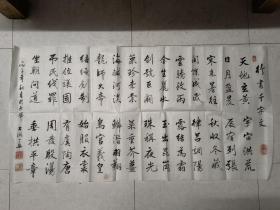 行書千字文
天地玄黄 宇宙洪荒
日月盈昃 辰宿列張
寒来暑往 秋收冬藏
閏餘成歲 律吕調陽
雲騰致雨 露結為霜
金生麗水 玉出崑岡
劍號巨闕 珠稱夜光
菓珍李柰 菜重芥薑
海鹹河淡 鱗潜羽翔
龍師火帝 鳥官人皇
始制文字 乃服衣裳
推位讓國 有虞陶唐
吊民伐罪 周發殷湯
坐朝問道 垂拱平章